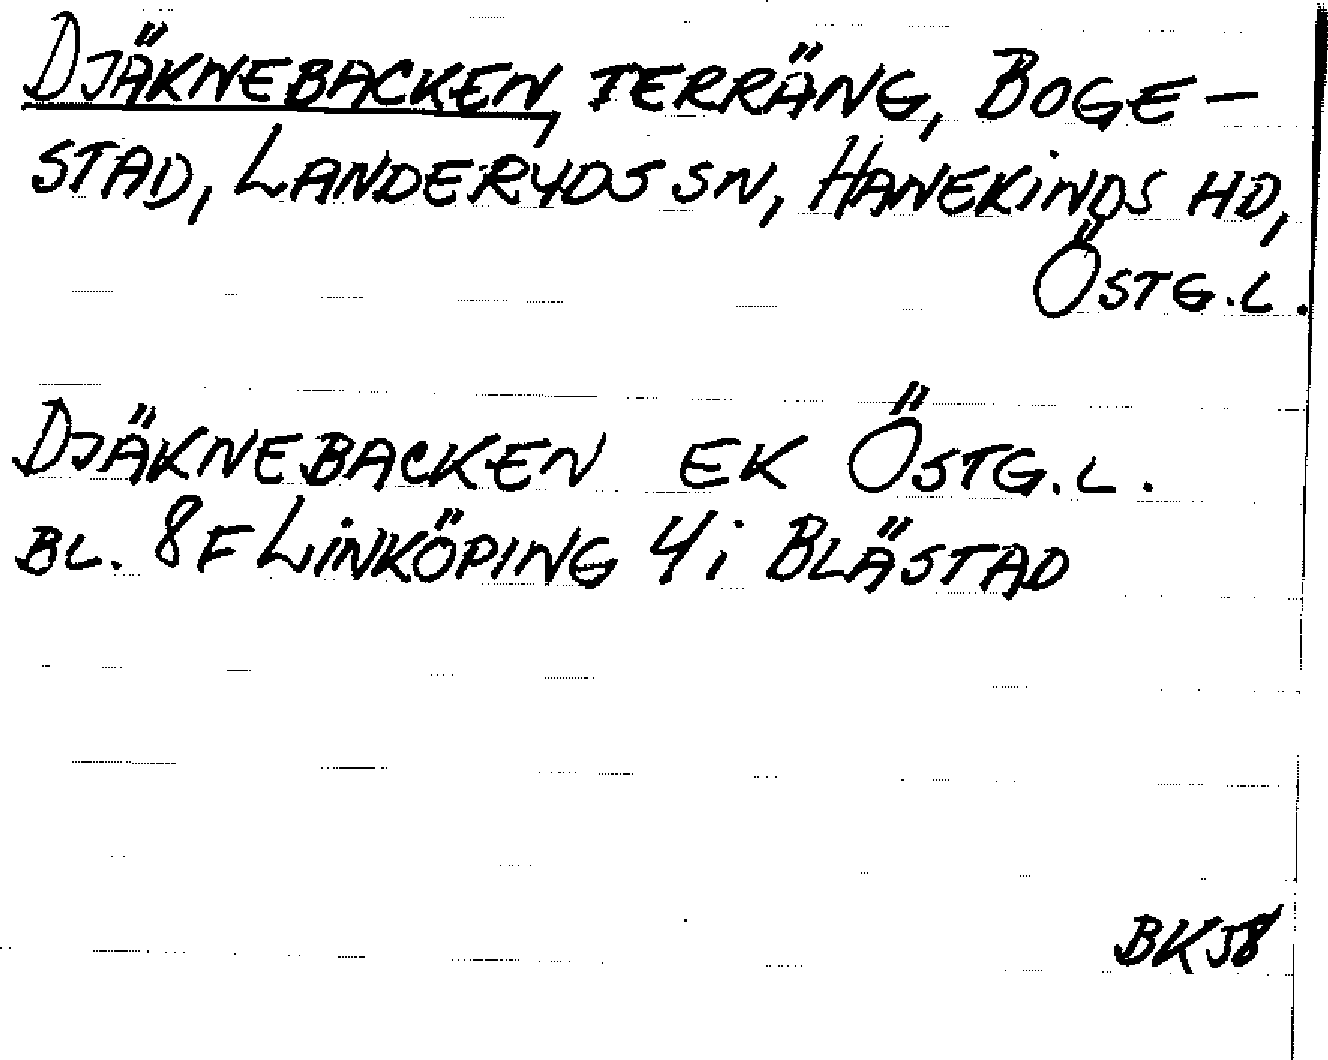 DJÄKNEBACKEN, TERRÄNG, BOGE-
STAD, LANDERYDS SN, HANEKINDS HD,
ÖSTG.L.
DJÄKNEBACKEN EK ÖSTG.L.
BL. 8F LINKÖPING 4i BLÄSTAD
BK58